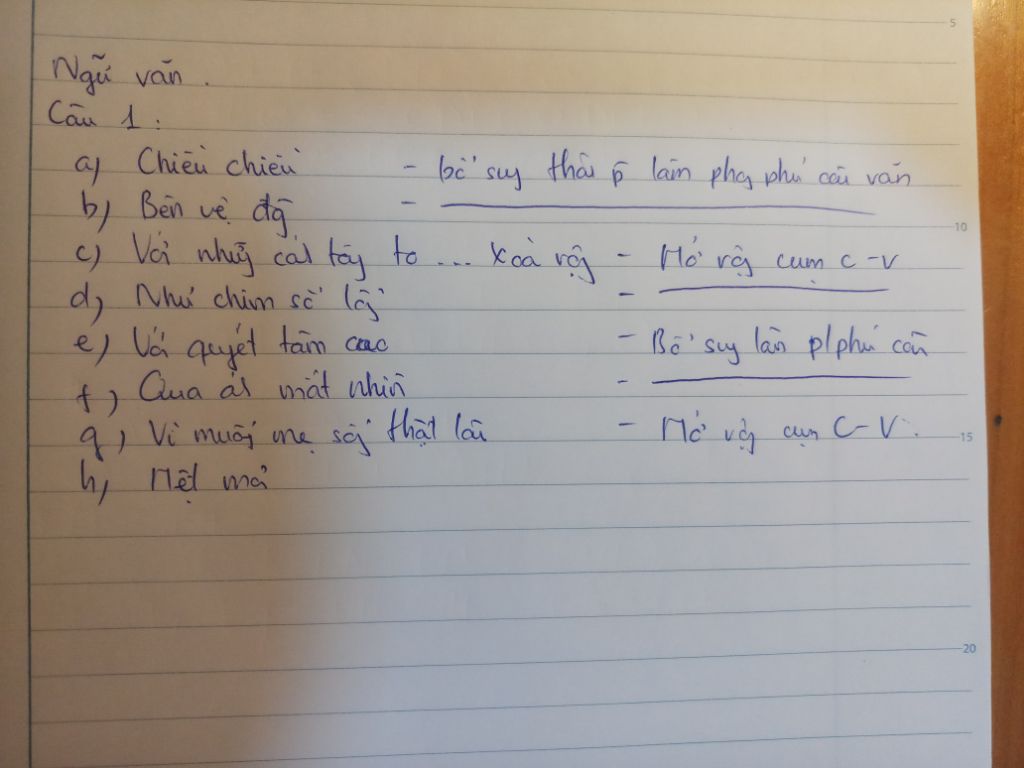 5
Ngữ văn.
Câu 1:
a) Chiều chiều - bổ suy thái làm phg phú câu văn
b) Bên vệ đg -
10
c) Với nhữg cái tây to ... xoà rộg - Mở rộg cụm C-V
d) Như chim sổ lồg -
e) Với quyết tâm cao - Bổ suy làm p/phú câu
f) Qua ánh mắt nhìn -
g) Vì muốn mẹ sốg thật lâu - Mở rộg cụm C-V.
15
h) Mệt mỏi
20